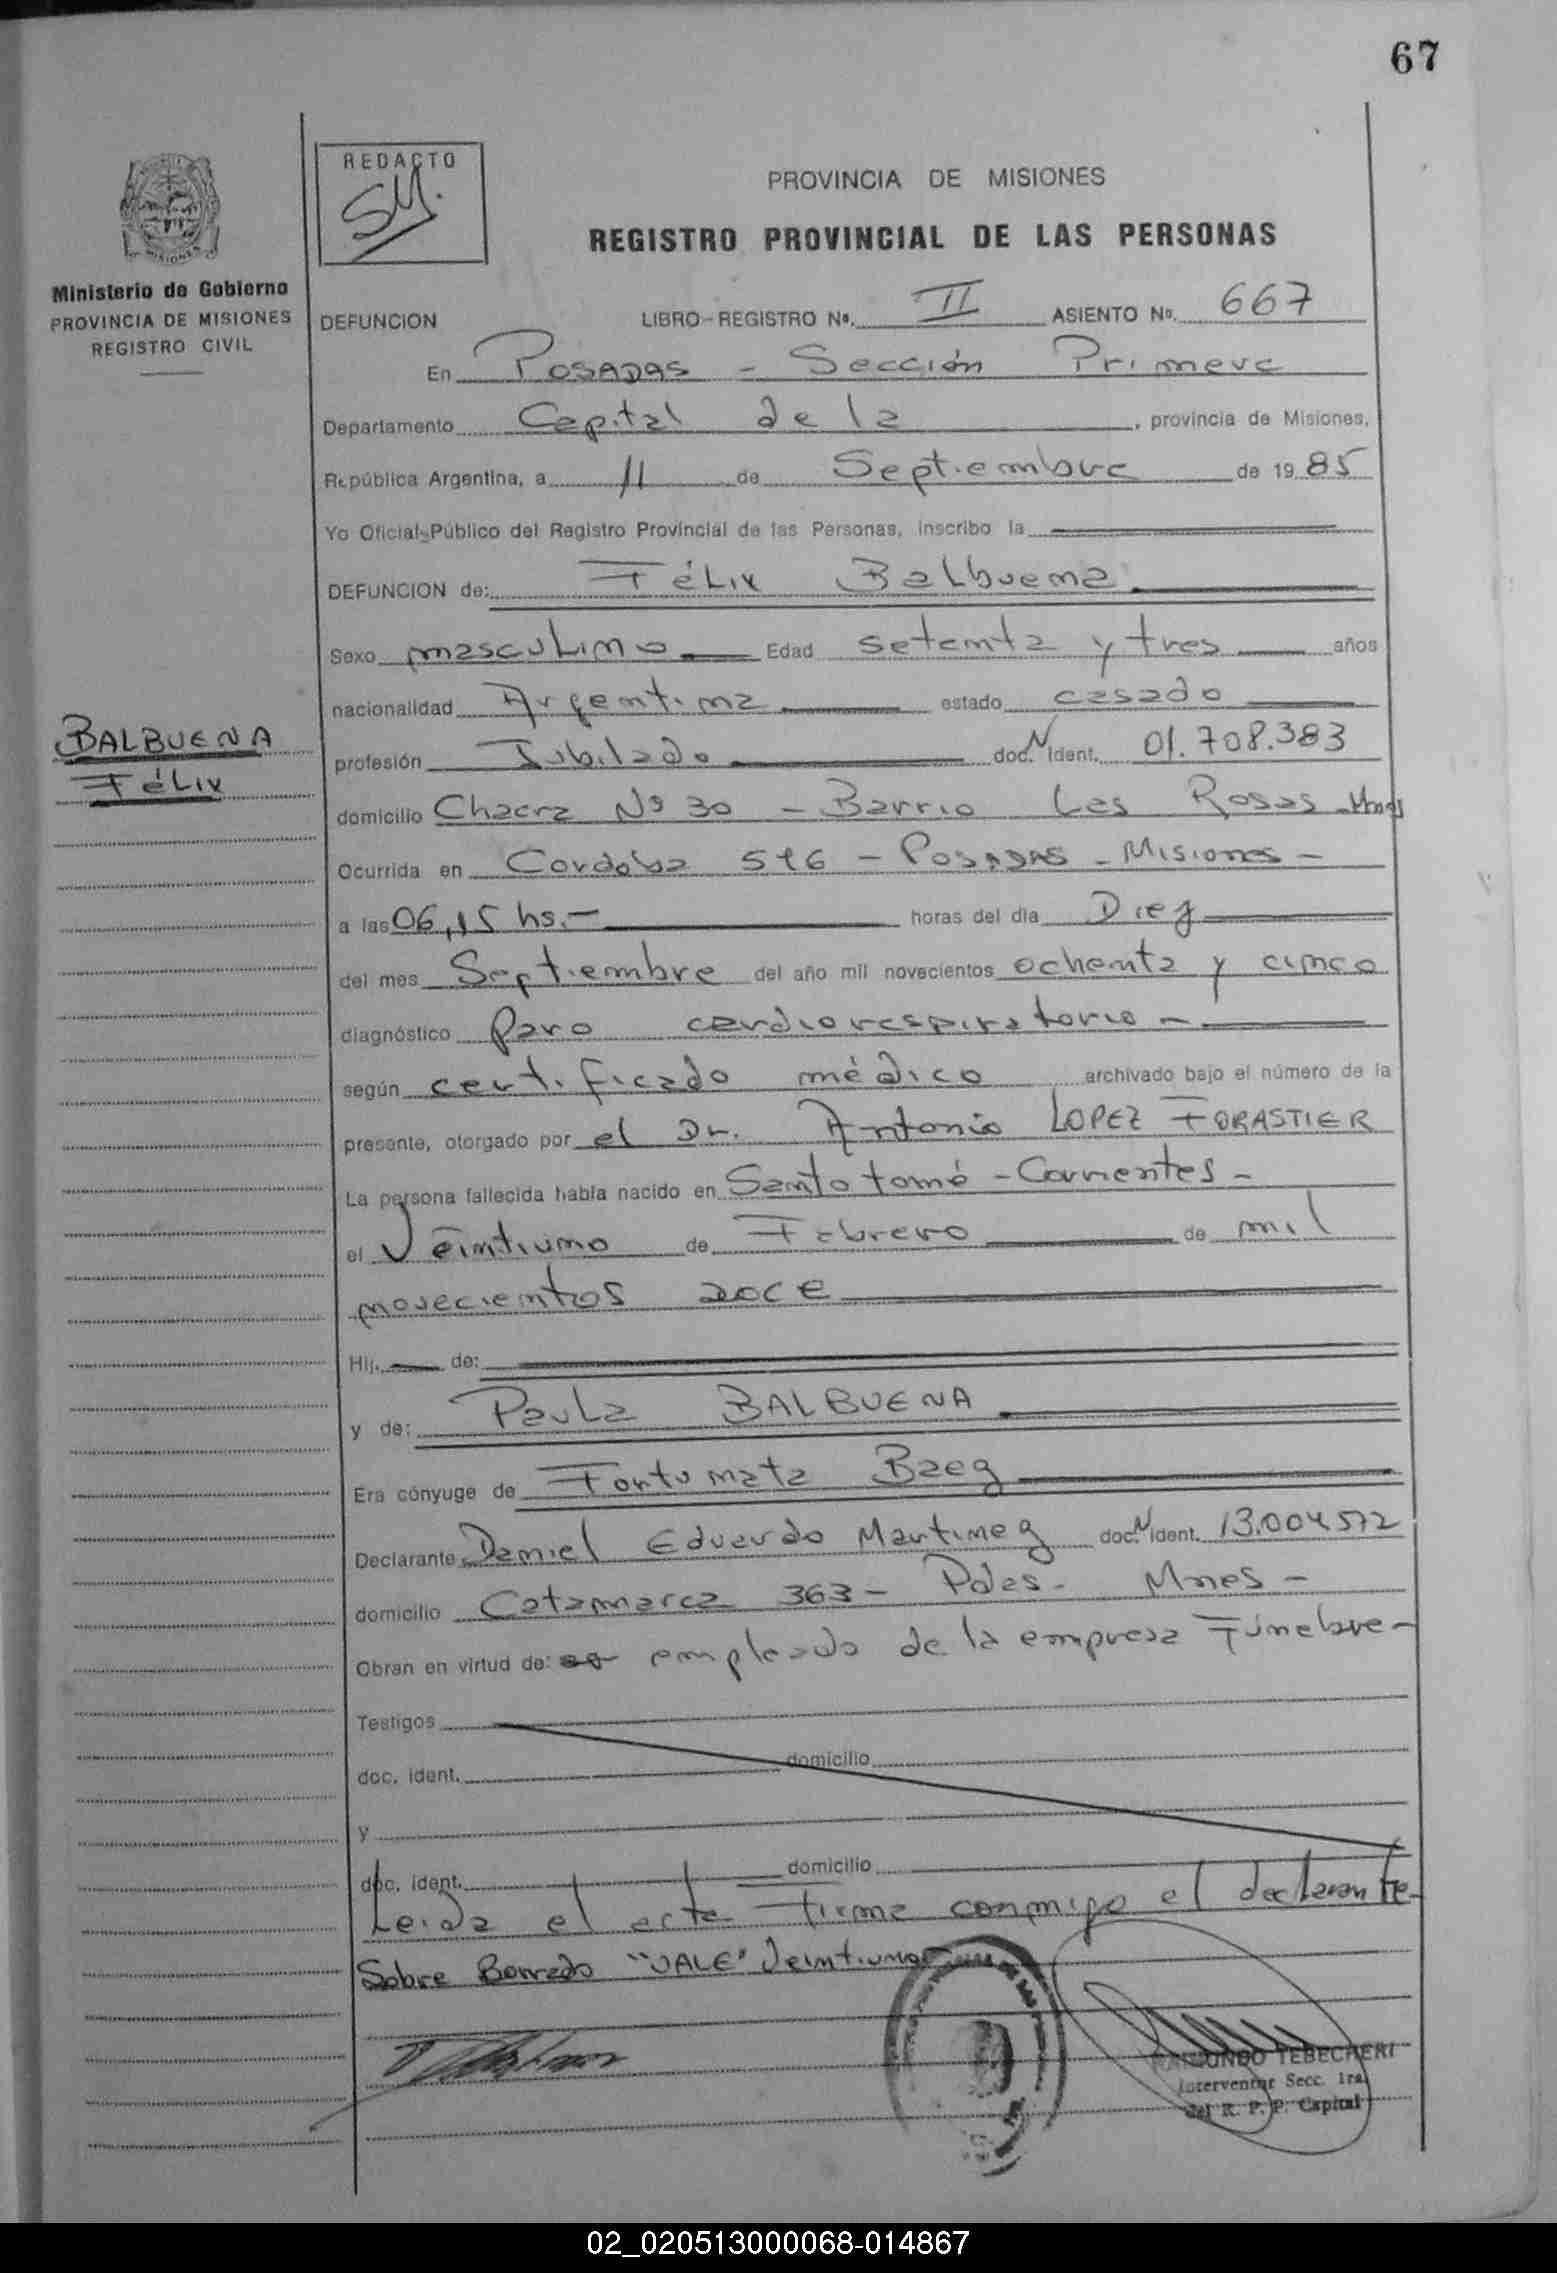 67
REDACTO
SM.
PROVINCIA DE MISIONES
REGISTRO PROVINCIAL DE LAS PERSONAS
Ministerio de Gobierno
PROVINCIA DE MISIONES
REGISTRO CIVIL
DEFUNCION LIBRO-REGISTRO Nº. II ASIENTO Nº. 667
En POSADAS - Sección Primera
Departamento Capital de la, provincia de Misiones,
República Argentina, a 11 de Septiembre de 1985
Yo Oficial Público del Registro Provincial de las Personas, inscribo la
DEFUNCION de: Félix Balbuena
Sexo masculino Edad setenta y tres años
nacionalidad Argentina estado casado
BALBUENA
Félix
profesión Jubilado doc. N ident. 01.708.383
domicilio Chacra Nº 30 - Barrio Las Rosas - Mnes
Ocurrida en Cordoba 516 - POSADAS - Misiones -
a las 06,15 hs.- horas del día Diez
del mes Septiembre del año mil novecientos ochenta y cinco
diagnóstico Paro cardiorespiratorio -
según certificado médico archivado bajo el número de la
presente, otorgado por el Dr. Antonio LOPEZ FORASTIER
La persona fallecida había nacido en Santo tomé - Corrientes -
el Veintiuno de Febrero de mil
novecientos doce
Hij. de:
y de: Paula BALBUENA
Era cónyuge de Fortunata Baez
Declarante Daniel Eduardo Martinez doc. N ident. 13.004572
domicilio Catamarca 363 - Pdas - Mnes -
Obran en virtud de: empleado de la empresa Fúnebre -
Testigos
doc. ident. domicilio
y
doc. ident. domicilio
Leida el acta Firma conmigo el declarante-
Sobre Borrado "VALE" Veintiuno
RAIMUNDO TEBECHERI
Interventor Secc. 1ra.
del R. P. P. Capital
02_020513000068-014867